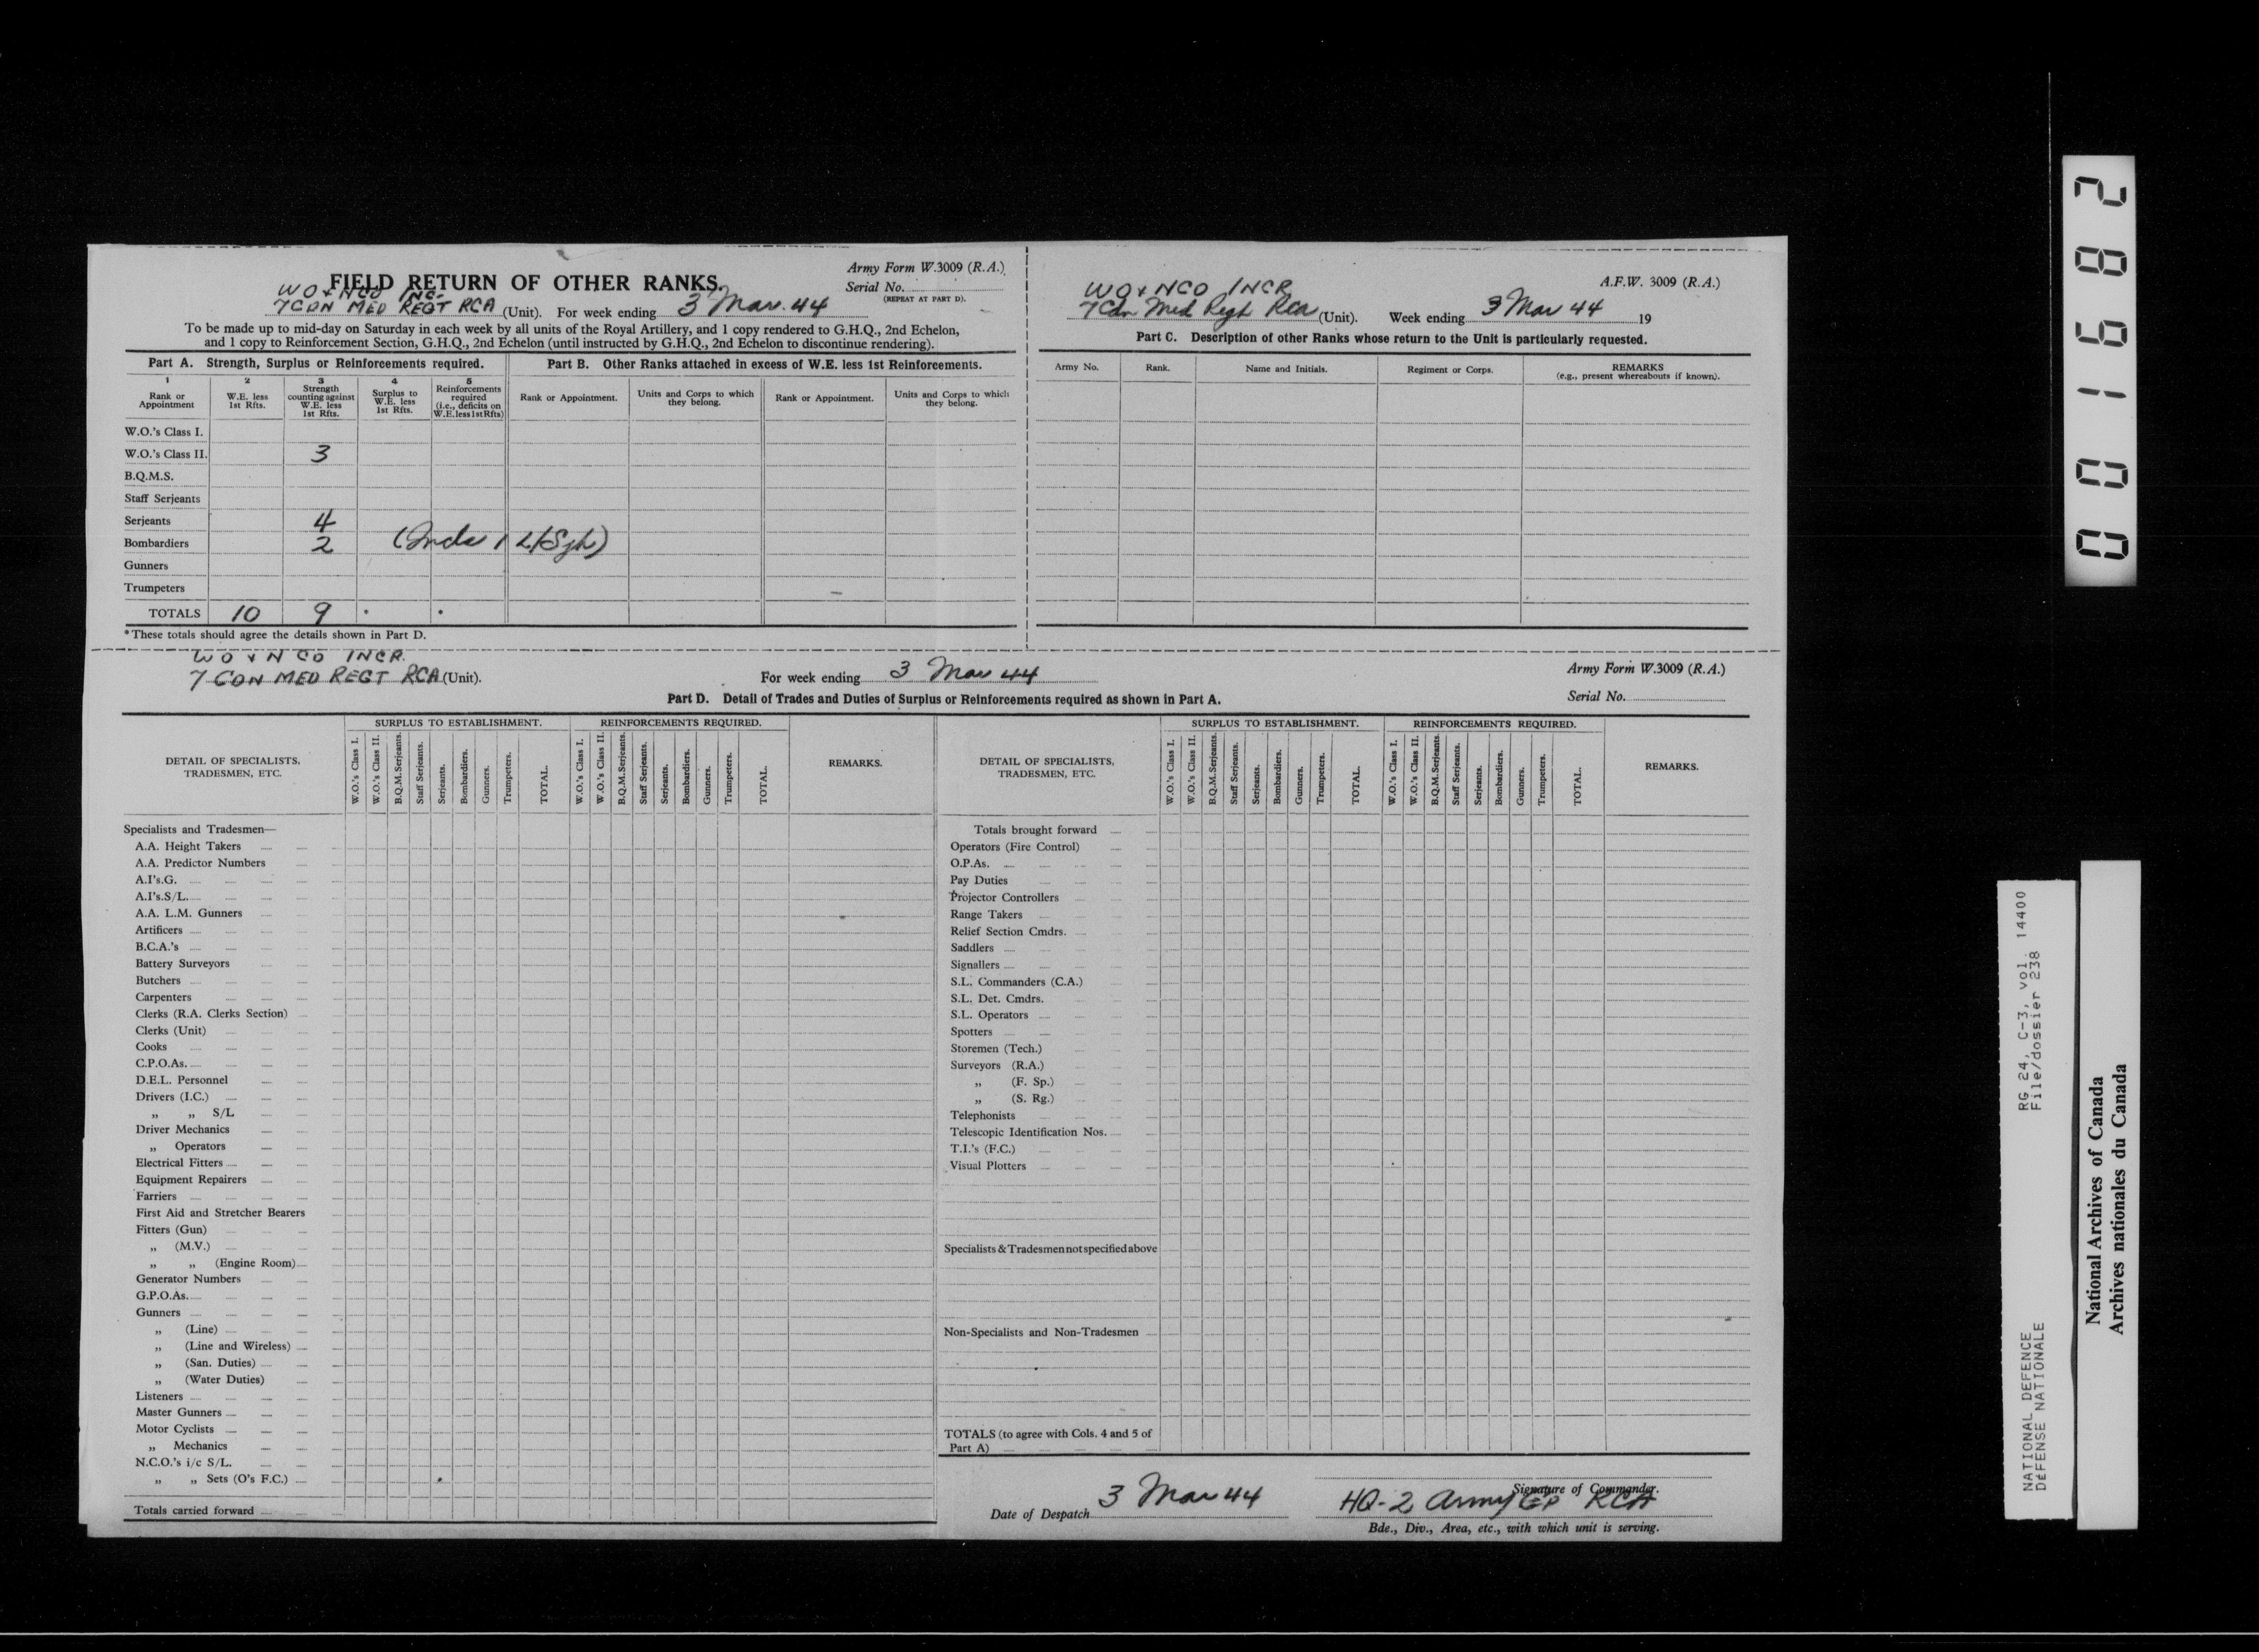 FIELD RETURN OF OTHER RANKS.
Army Form W.3009 (R.A.)
Serial No.
(REPEAT AT PART D).
WO & NCO INC.
7 CDN MED REGT RCA (Unit). For week ending 3 Mar. 44
To be made up to mid-day on Saturday in each week by all units of the Royal Artillery, and 1 copy rendered to G.H.Q., 2nd Echelon,
and 1 copy to Reinforcement Section, G.H.Q., 2nd Echelon (until instructed by G.H.Q., 2nd Echelon to discontinue rendering).
Part A. Strength, Surplus or Reinforcements required.
1 2 3 4 5
Rank or Appointment
W.E. less 1st Rfts.
Strength counting against W.E. less 1st Rfts.
Surplus to W.E. less 1st Rfts.
Reinforcements required (i.e., deficits on W.E. less 1st Rfts)
W.O.'s Class I.
W.O.'s Class II. 3
B.Q.M.S.
Staff Serjeants
Serjeants 4
Bombardiers 2 (Incls 1 L/Sjt)
Gunners
Trumpeters
TOTALS 10 9 * *
*These totals should agree the details shown in Part D.
Part B. Other Ranks attached in excess of W.E. less 1st Reinforcements.
Rank or Appointment.
Units and Corps to which they belong.
Rank or Appointment.
Units and Corps to which they belong.
A.F.W. 3009 (R.A.)
WO & NCO INCR
7 Cdn Med Regt RCA (Unit). Week ending 3 Mar 44 19
Part C. Description of other Ranks whose return to the Unit is particularly requested.
Army No. Rank. Name and Initials. Regiment or Corps. REMARKS
(e.g., present whereabouts if known).
WO & NCO INCR.
7 CDN MED REGT RCA (Unit). For week ending 3 Mar 44
Army Form W.3009 (R.A.)
Serial No.
Part D. Detail of Trades and Duties of Surplus or Reinforcements required as shown in Part A.
DETAIL OF SPECIALISTS, TRADESMEN, ETC.
SURPLUS TO ESTABLISHMENT.
W.O.'s Class I. W.O.'s Class II. B.Q.M.Serjeants. Staff Serjeants. Serjeants. Bombardiers. Gunners. Trumpeters. TOTAL.
REINFORCEMENTS REQUIRED.
W.O.'s Class I. W.O.'s Class II. B.Q.M.Serjeants. Staff Serjeants. Serjeants. Bombardiers. Gunners. Trumpeters. TOTAL.
REMARKS.
Specialists and Tradesmen—
A.A. Height Takers
A.A. Predictor Numbers
A.I's.G.
A.I's.S/L.
A.A. L.M. Gunners
Artificers
B.C.A.'s
Battery Surveyors
Butchers
Carpenters
Clerks (R.A. Clerks Section)
Clerks (Unit)
Cooks
C.P.O.As.
D.E.L. Personnel
Drivers (I.C.)
„ „ S/L
Driver Mechanics
„ Operators
Electrical Fitters
Equipment Repairers
Farriers
First Aid and Stretcher Bearers
Fitters (Gun)
„ (M.V.)
„ „ (Engine Room)
Generator Numbers
G.P.O.As.
Gunners
„ (Line)
„ (Line and Wireless)
„ (San. Duties)
„ (Water Duties)
Listeners
Master Gunners
Motor Cyclists
„ Mechanics
N.C.O.'s i/c S/L.
„ „ Sets (O's F.C.)
Totals carried forward
DETAIL OF SPECIALISTS, TRADESMEN, ETC.
SURPLUS TO ESTABLISHMENT.
W.O.'s Class I. W.O.'s Class II. B.Q.M.Serjeants. Staff Serjeants. Serjeants. Bombardiers. Gunners. Trumpeters. TOTAL.
REINFORCEMENTS REQUIRED.
W.O.'s Class I. W.O.'s Class II. B.Q.M.Serjeants. Staff Serjeants. Serjeants. Bombardiers. Gunners. Trumpeters. TOTAL.
REMARKS.
Totals brought forward
Operators (Fire Control)
O.P.As.
Pay Duties
Projector Controllers
Range Takers
Relief Section Cmdrs.
Saddlers
Signallers
S.L. Commanders (C.A.)
S.L. Det. Cmdrs.
S.L. Operators
Spotters
Storemen (Tech.)
Surveyors (R.A.)
„ (F. Sp.)
„ (S. Rg.)
Telephonists
Telescopic Identification Nos.
T.I.'s (F.C.)
Visual Plotters
Specialists & Tradesmen not specified above
Non-Specialists and Non-Tradesmen
TOTALS (to agree with Cols. 4 and 5 of
Part A)
Date of Despatch 3 Mar 44
Signature of Commander.
HQ-2 Army GP RCA
Bde., Div., Area, etc., with which unit is serving.
001682
NATIONAL DEFENCE RG 24, C-3, vol. 14400
DÉFENSE NATIONALE File/dossier 238
National Archives of Canada
Archives nationales du Canada